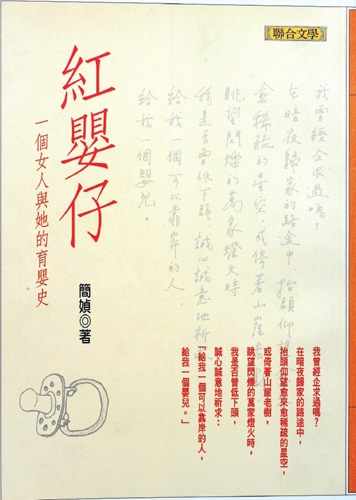 聯合文學
紅嬰仔
一個女人與她的育嬰史
簡媜◎著
我曾經企求過嗎?
在暗夜歸家的路途中,抬頭仰望
愈稀疏的星空,或倚著山崖老
眺望閃爍的萬家燈火時
我是否曾低下頭,誠心誠意地祈
給我一個可以靠岸的人
給我一個嬰兒。
我曾經企求過嗎?
在暗夜歸家的路途中,
抬頭仰望愈來愈稀疏的星空,
或倚著山崖老樹,
眺望閃爍的萬家燈火時,
我是否曾低下頭,
誠心誠意地祈求:
「給我一個可以靠岸的人,
給我一個嬰兒。」